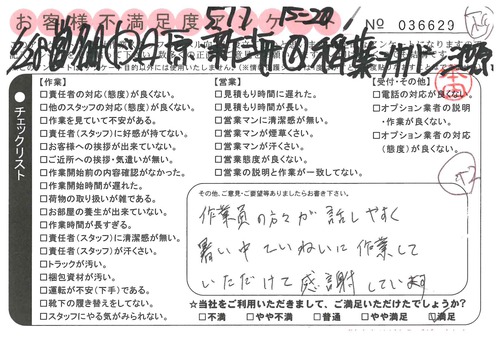 お客様不満足度アンケート
5/17 15-20
No 036629
チェックリスト
【作業】
□責任者の対応(態度)が良くない。
□他のスタッフの対応(態度)が良くない。
□作業を見ていて不安がある。
□責任者(スタッフ)に好感が持てない。
□お客様への挨拶が出来ていない。
□ご近所への挨拶・気遣いが無い。
□作業開始前の内容確認がなかった。
□作業開始時間が遅れた。
□荷物の取り扱いが雑である。
□お部屋の養生が出来ていない。
□作業時間が長すぎる。
□責任者(スタッフ)に清潔感が無い。
□責任者(スタッフ)が汗くさい。
□トラックが汚い。
□梱包資材が汚い。
□運転が不安(下手)である。
□靴下の履き替えをしてない。
□スタッフにやる気がみられない。
【営業】
□見積もり時間に遅れた。
□見積もり時間が長い。
□営業マンに清潔感が無い。
□営業マンが煙草くさい。
□営業マンが汗くさい。
□営業態度が良くない。
□営業の説明と作業が一致してない。
【受付・その他】
□電話の対応が良くない。
□オプション業者の説明
・作業が良くない。
□オプション業者の対応
(態度)が良くない。
その他、ご意見・ご要望等ありましたらお書き下さい。
作業員の方々が話しやすく
暑い中ていねいに作業して
いただけて感謝しています
☆当社をご利用いただきまして、ご満足いただけたでしょうか?
□不満 □やや不満 □普通 □やや満足 □満足